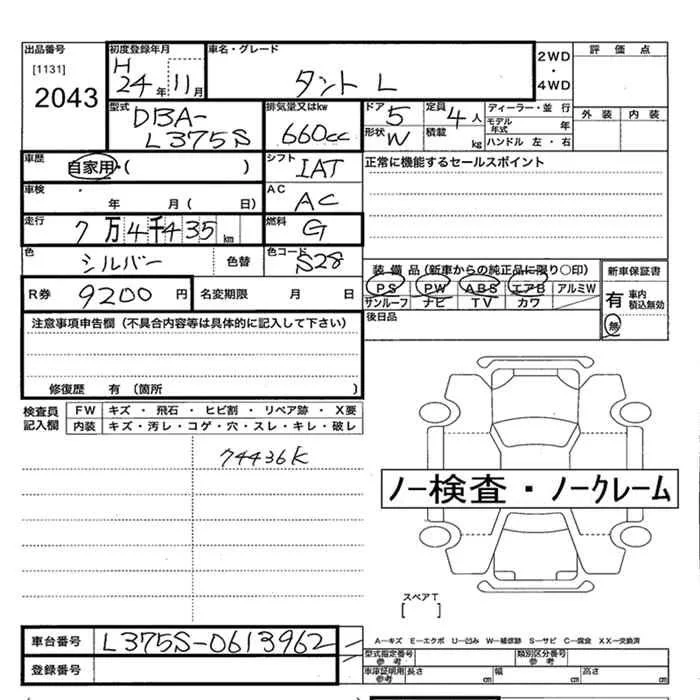 出品番号 初度登録年月 車名・グレード 2WD・4WD 評価点
[1131] H 24年 11月 タント L
2043
外装 内装
型式 DBA-L375S 排気量又はkw 660cc ドア 5 定員 4人 ディーラー・並行
形状 W 積載 kg モデル年式 年
ハンドル 左・右
車歴 自家用・( ) シフト IAT 正常に機能するセールスポイント
車検 年 月( 日) AC AC
走行 7万4千435km 燃料 G
色 シルバー 色替 色コード S28
装備品(新車からの純正品に限り○印) 新車保証書
PS PW ABS エアB アルミW 有 車内 積込無効
サンルーフ ナビ TV カワ 無
R券 9200円 名変期限 月 日 後日品
注意事項申告欄(不具合内容等は具体的に記入して下さい)
修復歴 有(箇所 )
検査員記入欄 FW キズ・飛石・ヒビ割・リペア跡・X要
内装 キズ・汚レ・コゲ・穴・スレ・キレ・破レ
74436K
ノー検査・ノークレーム
スペアT
[ ]
車台番号 L375S-0613962 A−キズ E−エクボ U−凹み W−補修跡 S−サビ C−腐食 XX−交換済
登録番号 型式指定番号 参考 類別区分番号 参考
車庫証明用 参考 長さ cm 幅 cm 高さ cm